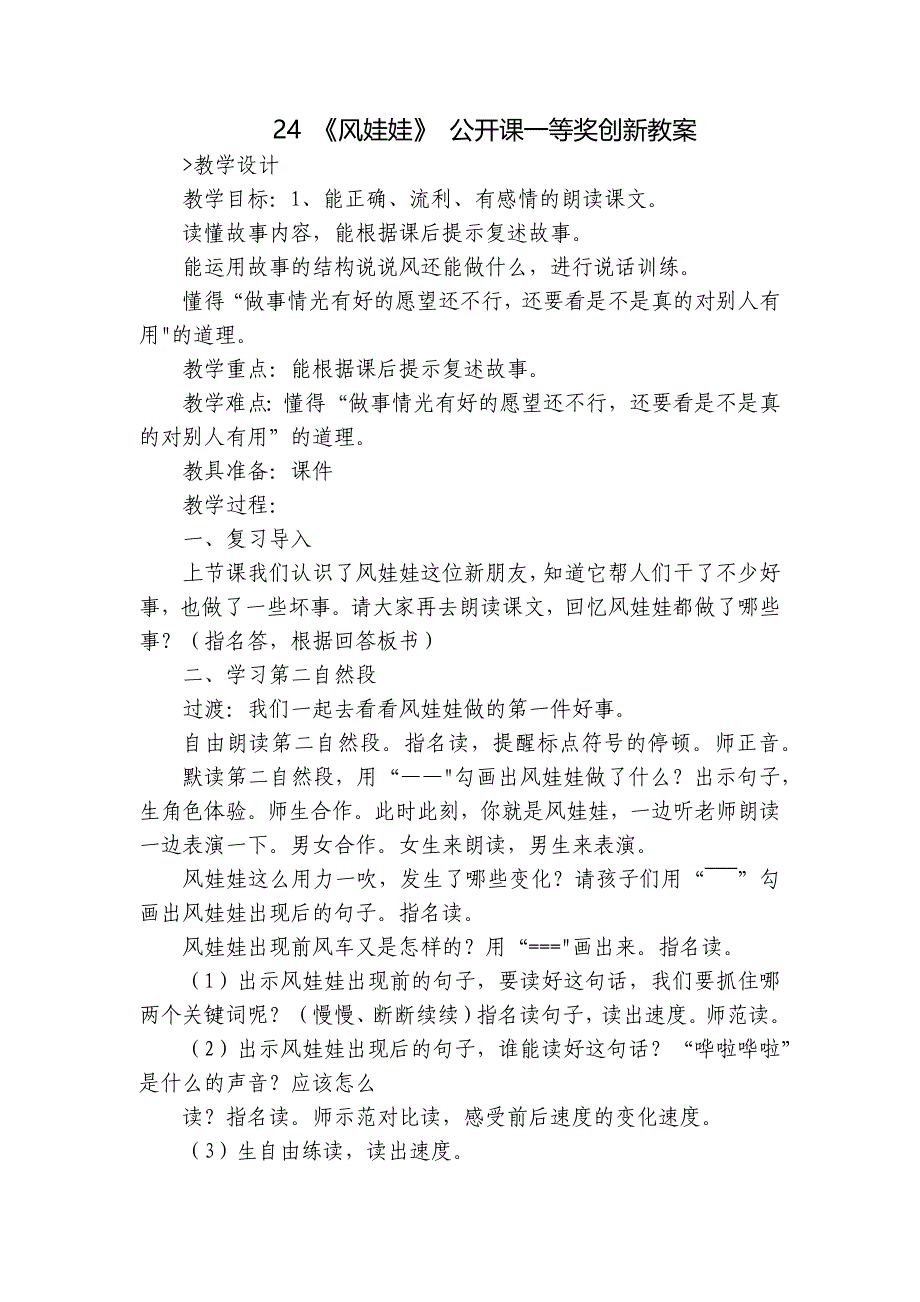 24 《风娃娃》 公开课一等奖创新教案
>教学设计
教学目标：1、能正确、流利、有感情的朗读课文。
读懂故事内容，能根据课后提示复述故事。
能运用故事的结构说说风还能做什么，进行说话训练。
懂得“做事情光有好的愿望还不行，还要看是不是真的对别人有
用"的道理。
教学重点：能根据课后提示复述故事。
教学难点：懂得“做事情光有好的愿望还不行，还要看是不是真
的对别人有用”的道理。
教具准备：课件
教学过程：
一、复习导入
上节课我们认识了风娃娃这位新朋友，知道它帮人们干了不少好
事，也做了一些坏事。请大家再去朗读课文，回忆风娃娃都做了哪些
事？（指名答，根据回答板书）
二、学习第二自然段
过渡：我们一起去看看风娃娃做的第一件好事。
自由朗读第二自然段。指名读，提醒标点符号的停顿。师正音。
默读第二自然段，用“——"勾画出风娃娃做了什么？出示句子，
生角色体验。师生合作。此时此刻，你就是风娃娃，一边听老师朗读
一边表演一下。男女合作。女生来朗读，男生来表演。
风娃娃这么用力一吹，发生了哪些变化？请孩子们用“￣￣”勾
画出风娃娃出现后的句子。指名读。
风娃娃出现前风车又是怎样的？用“==="画出来。指名读。
（1）出示风娃娃出现前的句子，要读好这句话，我们要抓住哪
两个关键词呢？（慢慢、断断续续）指名读句子，读出速度。师范读。
（2）出示风娃娃出现后的句子，谁能读好这句话？“哗啦哗啦”
是什么的声音？应该怎么
读？指名读。师示范对比读，感受前后速度的变化速度。
（3）生自由练读，读出速度。